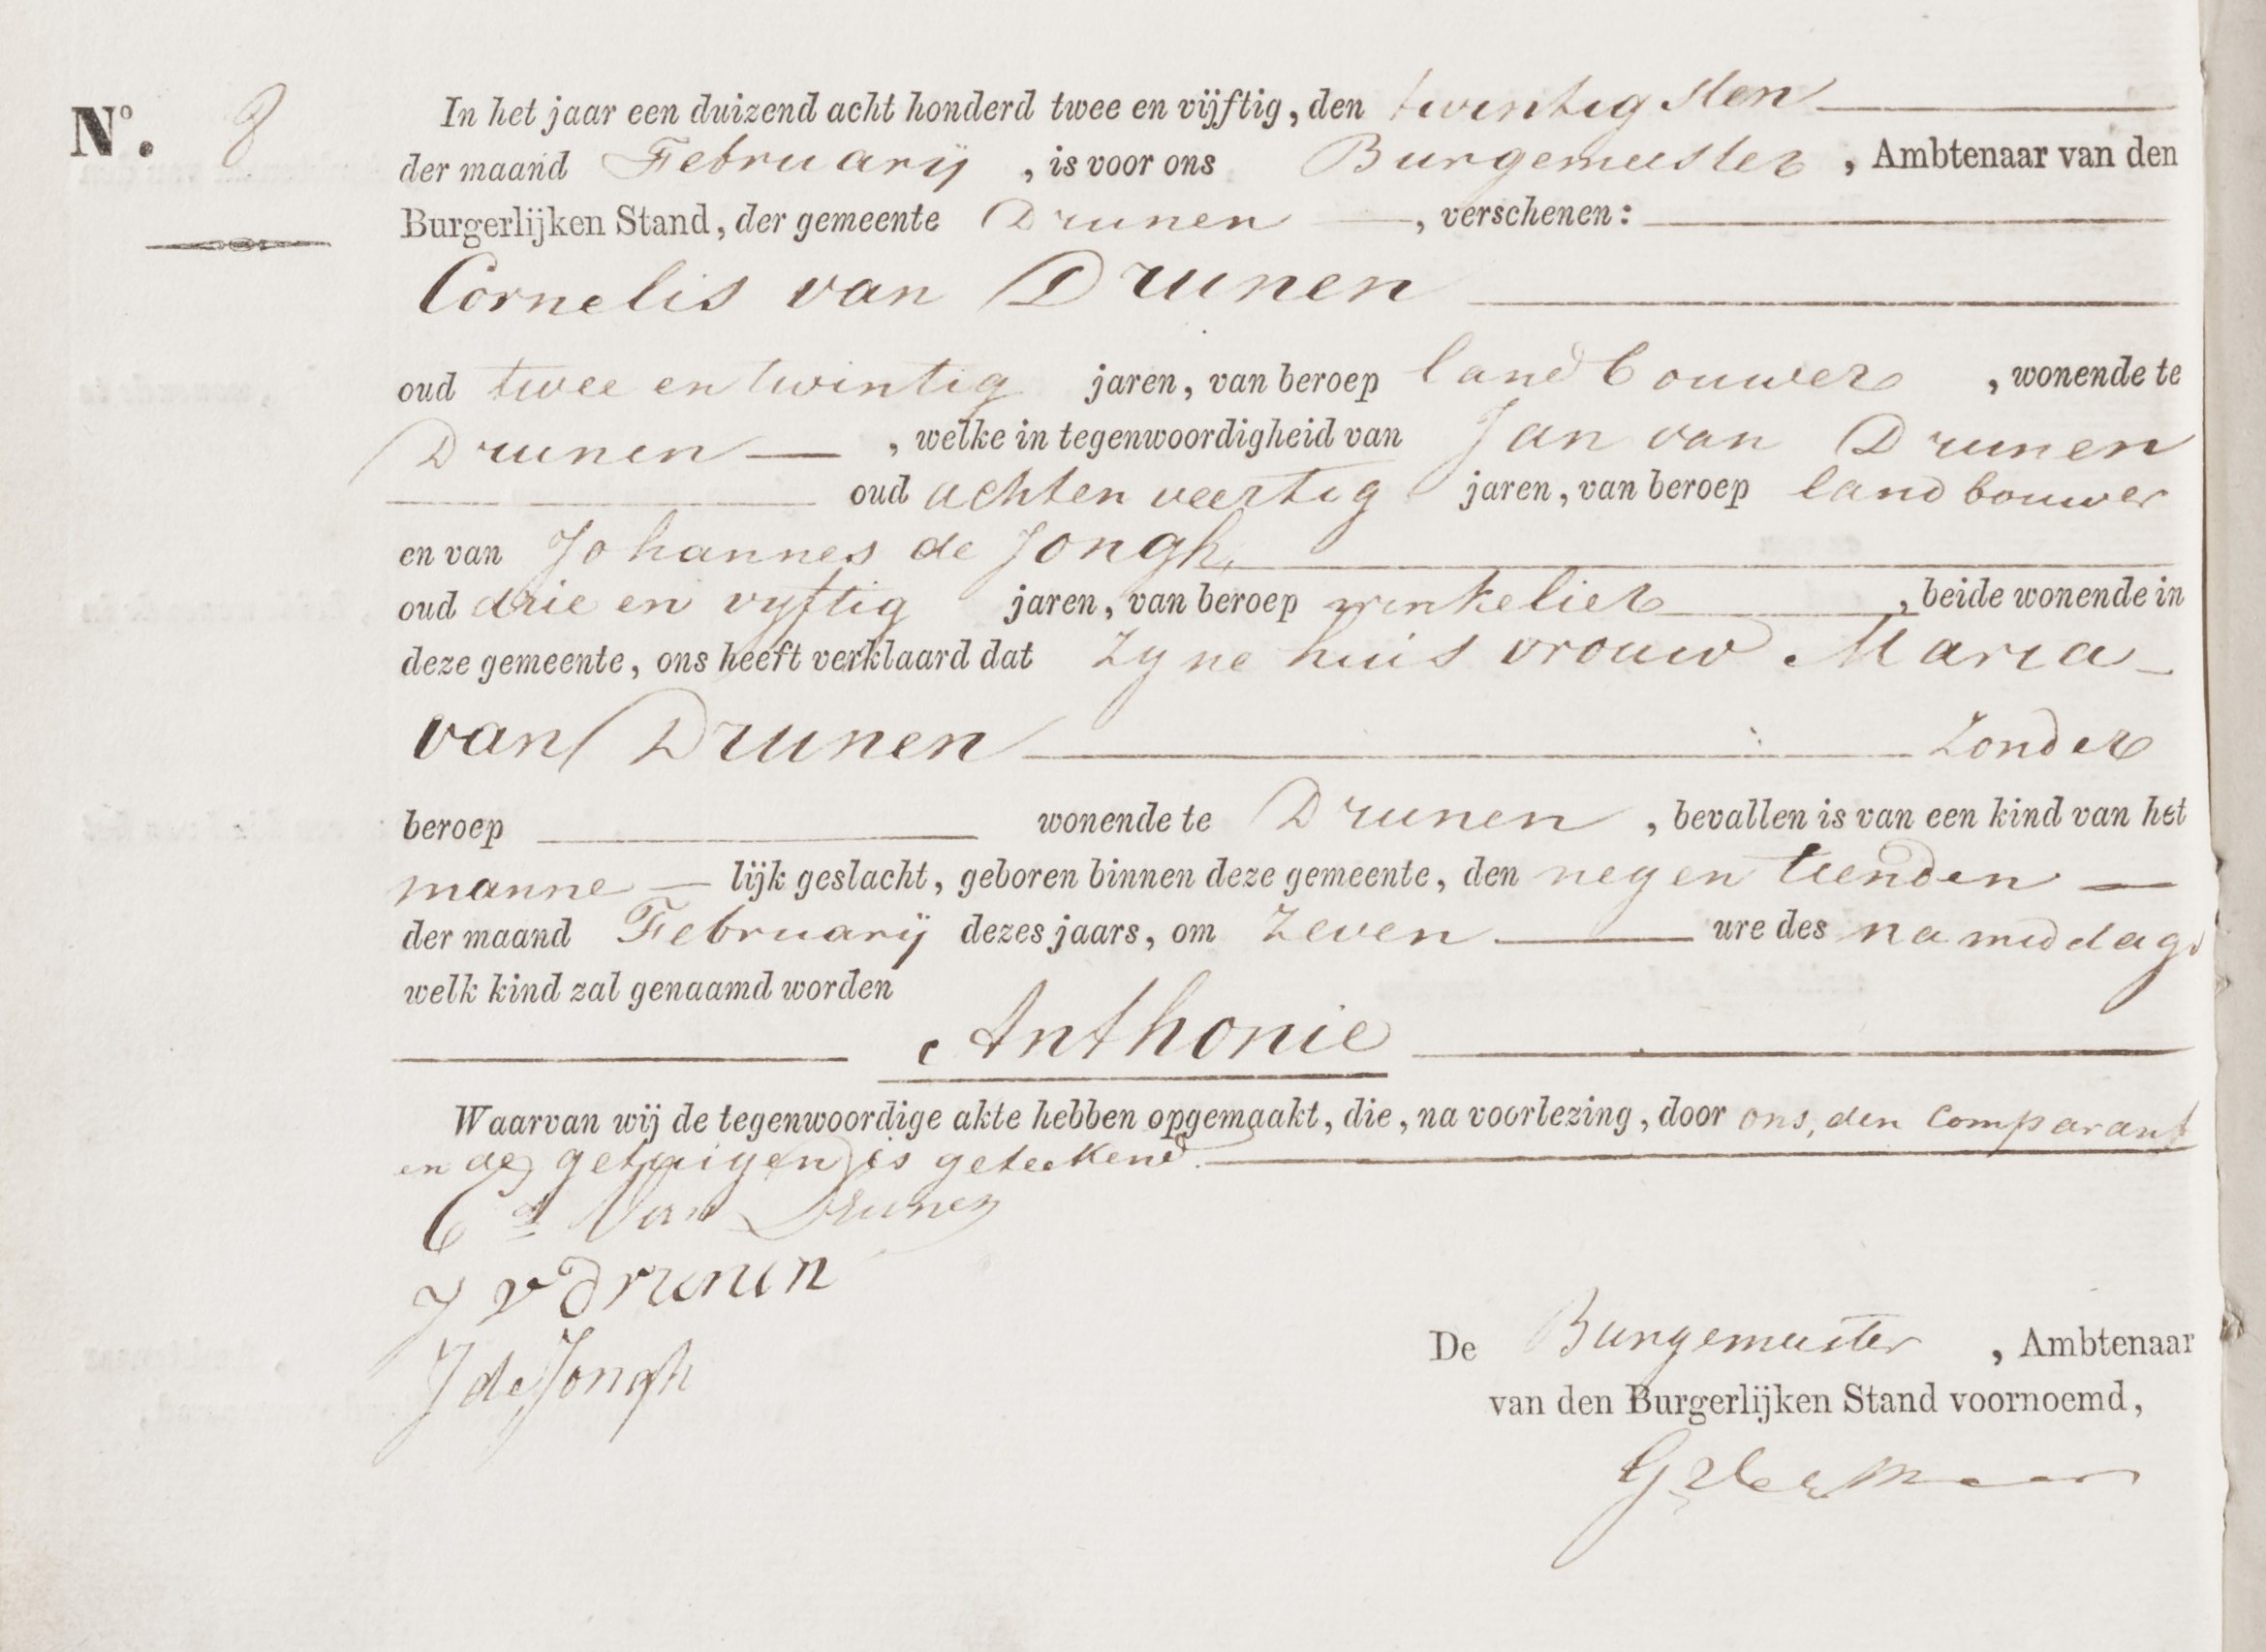 N.o 8
In het jaar een duizend acht honderd twee en vijftig, den twintigsten
der maand Februarij, is voor ons Burgemeester, Ambtenaar van den
Burgerlijken Stand, der gemeente Drunen, verschenen:
Cornelis van Drunen
oud twee en twintig jaren, van beroep landbouwer, wonende te
Drunen, welke in tegenwoordigheid van Jan van Drunen
oud achten veertig jaren, van beroep landbouwer
en van Johannes de Jongh
oud drie en vyftig jaren, van beroep winkelier, beide wonende in
deze gemeente, ons heeft verklaard dat Zyne huisvrouw Maria
van Drunen Zonder
beroep wonende te Drunen, bevallen is van een kind van het
manne lijk geslacht, geboren binnen deze gemeente, den negentienden
der maand Februarij dezes jaars, om Zeven ure des namiddags
welk kind zal genaamd worden
Anthonie
Waarvan wij de tegenwoordige akte hebben opgemaakt, die, na voorlezing, door ons, den Comparant
en de getuigen is geteekend.
Cs Van Drunen
J v Drunen
J de Jongh
De Burgemeester, Ambtenaar
van den Burgerlijken Stand voornoemd,